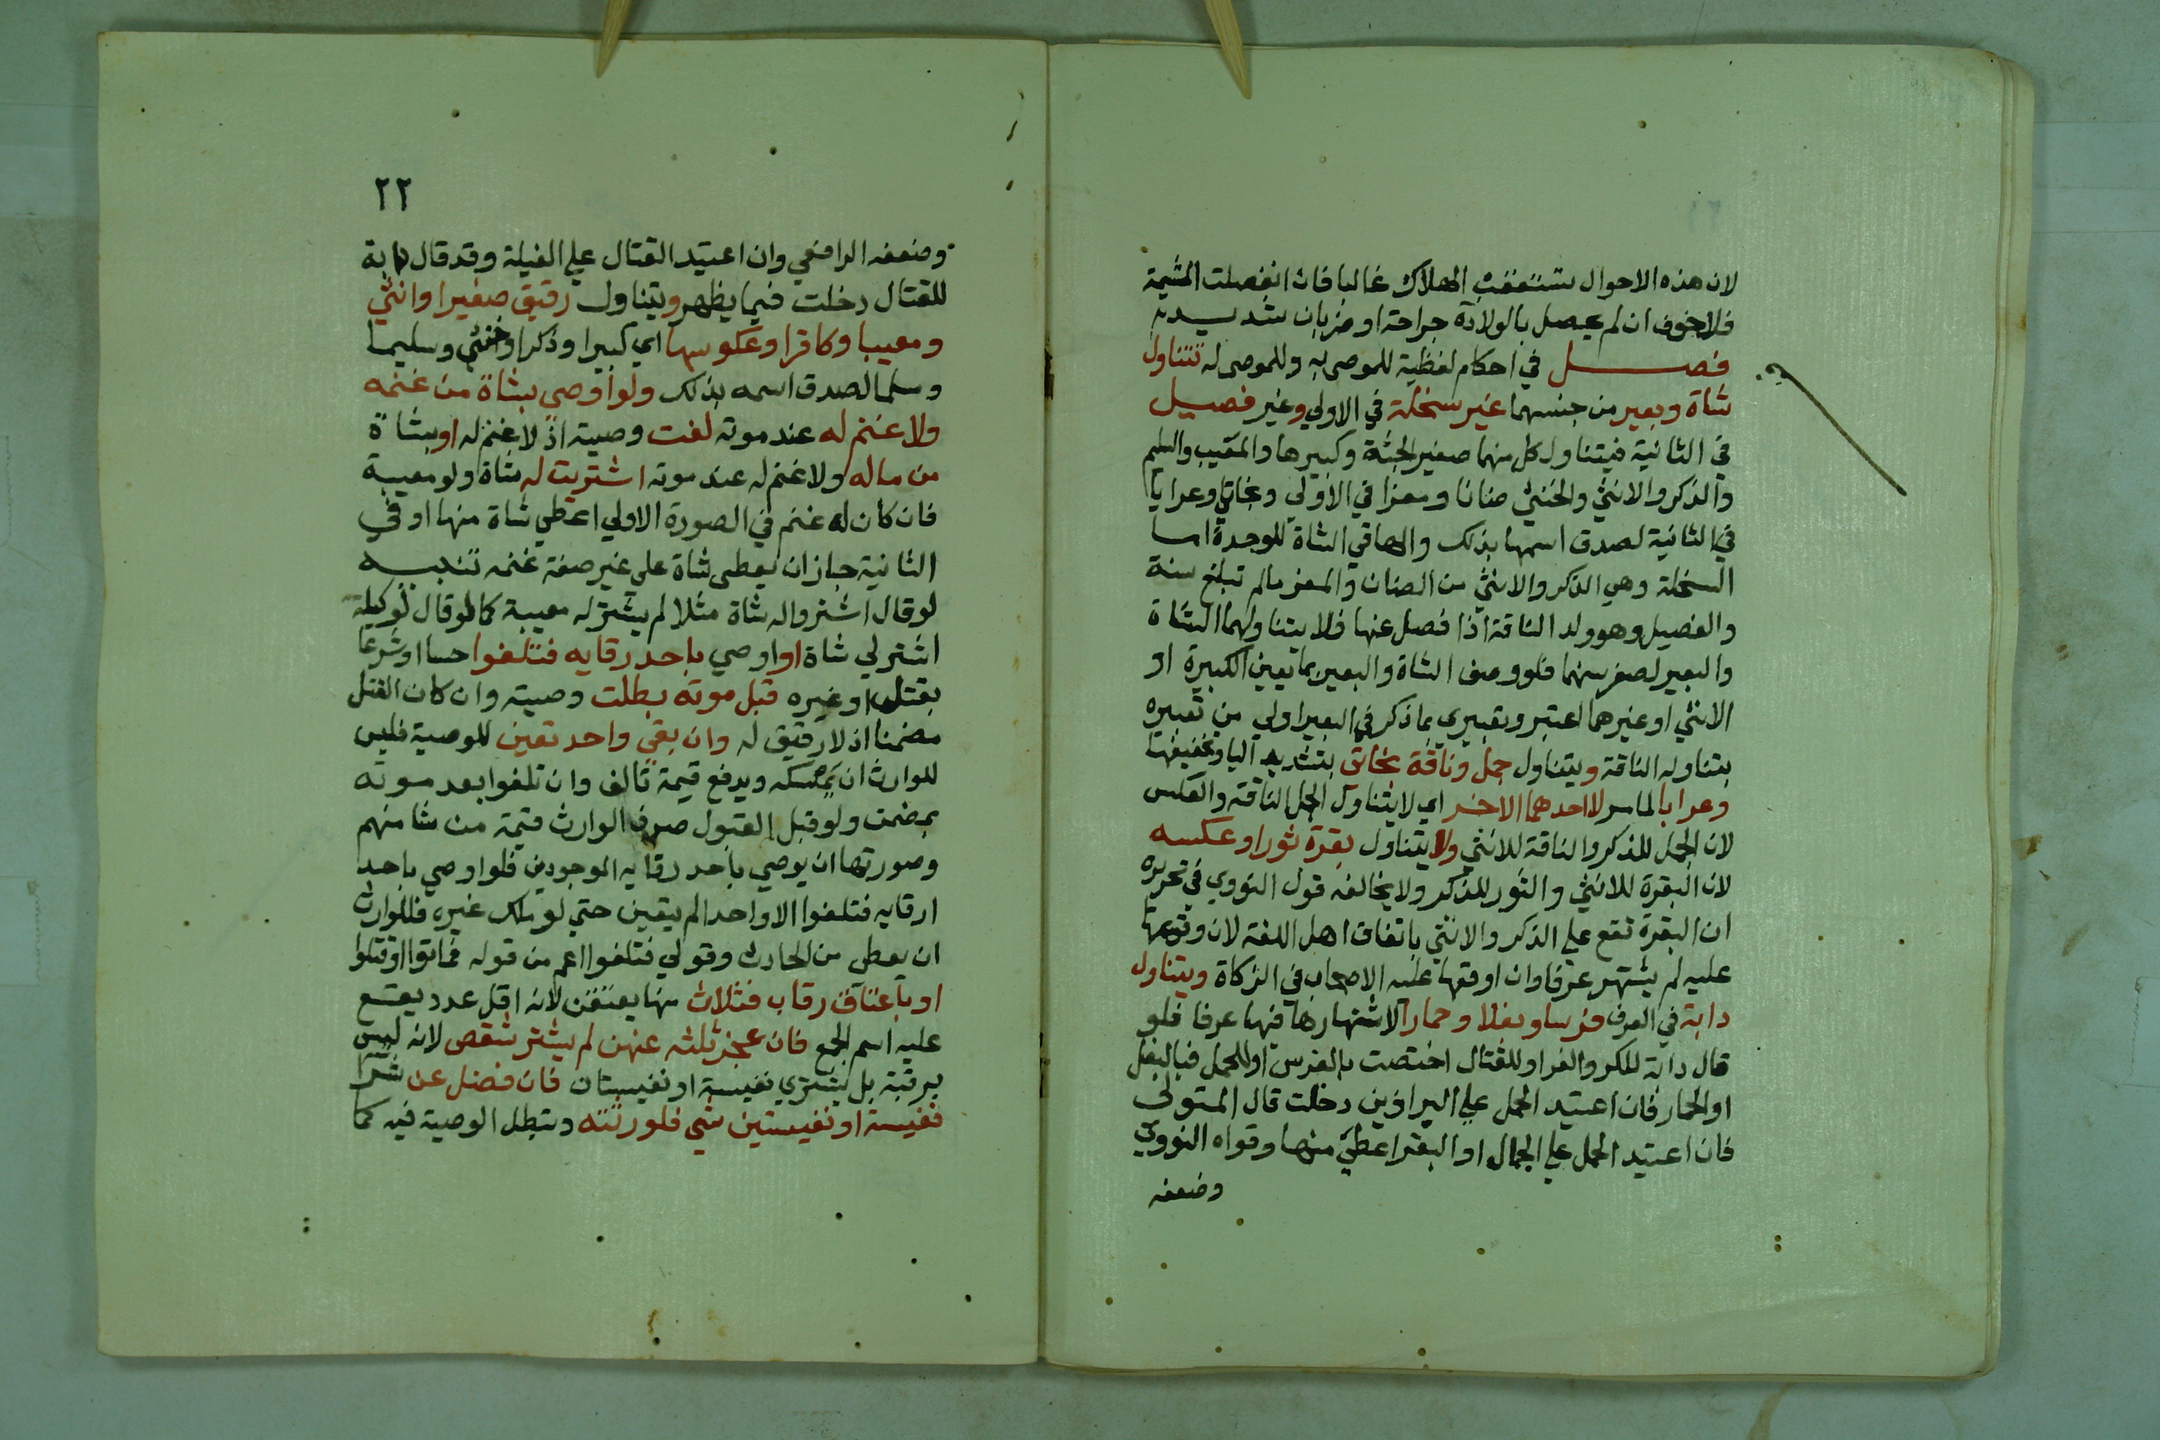 لان هذه الاحوال تستعقب الهلاك غالبا فان انفصلت المشيمة
فلا خوف ان لم يحصل بالولادة جراحة او ضربان شديد
فصل في احكام لفظية للموصى به وللموصى له تتناول
شاة وبعير من جنسهما غير سخلة في الاولي وغير فصيل
في الثانية فيتناول كل منهما صغير الجثة وكبيرها والمعيب والسليم
والذكر والانثي والخنثي ضانا ومعزا في الاولي وبخاتي وعرابا
في الثانية لصدق اسمها بذلك والها في الشاة للوحدة اما
السخلة وهي الذكر والانثي من الضان والمعز مالم تبلغ سنة
والفصيل وهو ولد الناقة اذا فصل عنها فلا يتناولهما الشاة
والبعير لصغر سنهما فلو وصف الشاة والبعير بما يعين الكبيرة او
الانثي او غيرهما اعتبر وتعبيري بما ذكر في البعير اولي من تعبيره
بتناوله الناقة ويتناول جمل وناقة بخاتي بتشديد اليا وتخفيفها
وعرابا لما مر لا احدهما الاخر اي لا يتناول الجمل الناقة والعكس
لان الجمل للذكر والناقة للانثي ولا يتناول بقرة ثورا وعكسه
لان البقرة للانثي والثور للذكر ولا يخالفه قول النووي في تحريره
ان البقرة تقع علي الذكر والانثي باتفاق اهل اللغة لان وقوعها
عليه لم يشتهر عرفا وان اوقعها عليه الاصحاب في الزكاة ويتناول
دابة في العرف فرسا وبغلا وحمارا لاشتهارها فيها عرفا فلو
قال دابة للكر والفر او للقتال اختصت بالفرس او للحمل فبالبغل
او الحمار فان اعتيد الحمل علي البراذين دخلت قال المتولى
فان اعتيد الحمل علي الجمال او البقر اعطي منها وقواه النووي
وضعفه
٢٢
وضعفه الرافعي وان اعتيد القتال علي الفيلة وقد قال دابة
للقتال دخلت فيما يظهر ويتناول رقيق صغيرا وانثي
ومعيبا وكافرا وعكوسها اي كبيرا وذكرا وخنثي وسليما
ومسلما لصدق اسمه بذلك ولو اوصى بشاة من غنمه
ولا غنم له عند موته لغت وصيته اذ لا غنم له او بشاة
من ماله ولا غنم له عند موته اشتريت له شاة ولو معيبة
فان كان له غنم في الصورة الاولي اعطي شاة منها او في
الثانية جاز ان يعطى شاة علي غير صفة غنمه تنبيه
لو قال اشتروا له شاة مثلا لم يشتر له معيبة كما لو قال لوكيله
اشتر لي شاة او اوصي باحد رقايه فتلفوا حسا او شرعا
بقتل او غيره قبل موته بطلت وصيته وان كان القتل
مضمنا اذ لا رقيق له وان بقي واحد تعين للوصية فليس
للوارث ان يمسكه ويدفع قيمة تالف وان تلفوا بعد موته
بمضمن ولو قبل القبول صرف الوارث قيمة من شا منهم
وصورتها ان يوصي باحد رقايه الموجودين فلو اوصي باحد
ارقايه فتلفوا الا واحدا لم يتعين حتي لو ملك غيره فللوارث
ان يعطي من الحادث وقولي فتلفوا اعم من قوله فماتوا او قتلوا
او باعتاق رقاب فثلاث منها يعتقن لانه اقل عدد يقع
عليه اسم الجمع فان عجز ثلثه عنهن لم يشتر شقص لانه ليس
برقبة بل يشتري نفيسة او نفيستان فان فضل عن شرا
نفيسة او نفيستين شي فلورثته وتبطل الوصية فيه كما